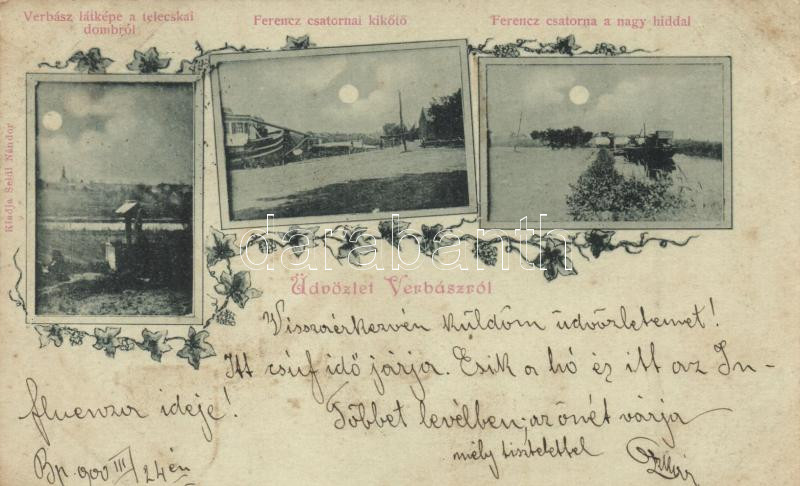 Verbász látképe a telecskai
dombról
Ferencz csatornai kikötő
Ferencz csatorna a nagy hiddal
Kiadja Szidl Nándor
darabanth
Üdvözlet Verbászról
Visszaérkezvén küldöm üdvözletemet!
Itt csúf idő járja. Esik a hó és itt az In-
fluenza ideje!
Többet levélben, az önét várja
mély tisztelettel
Bp. 900 III/24 én